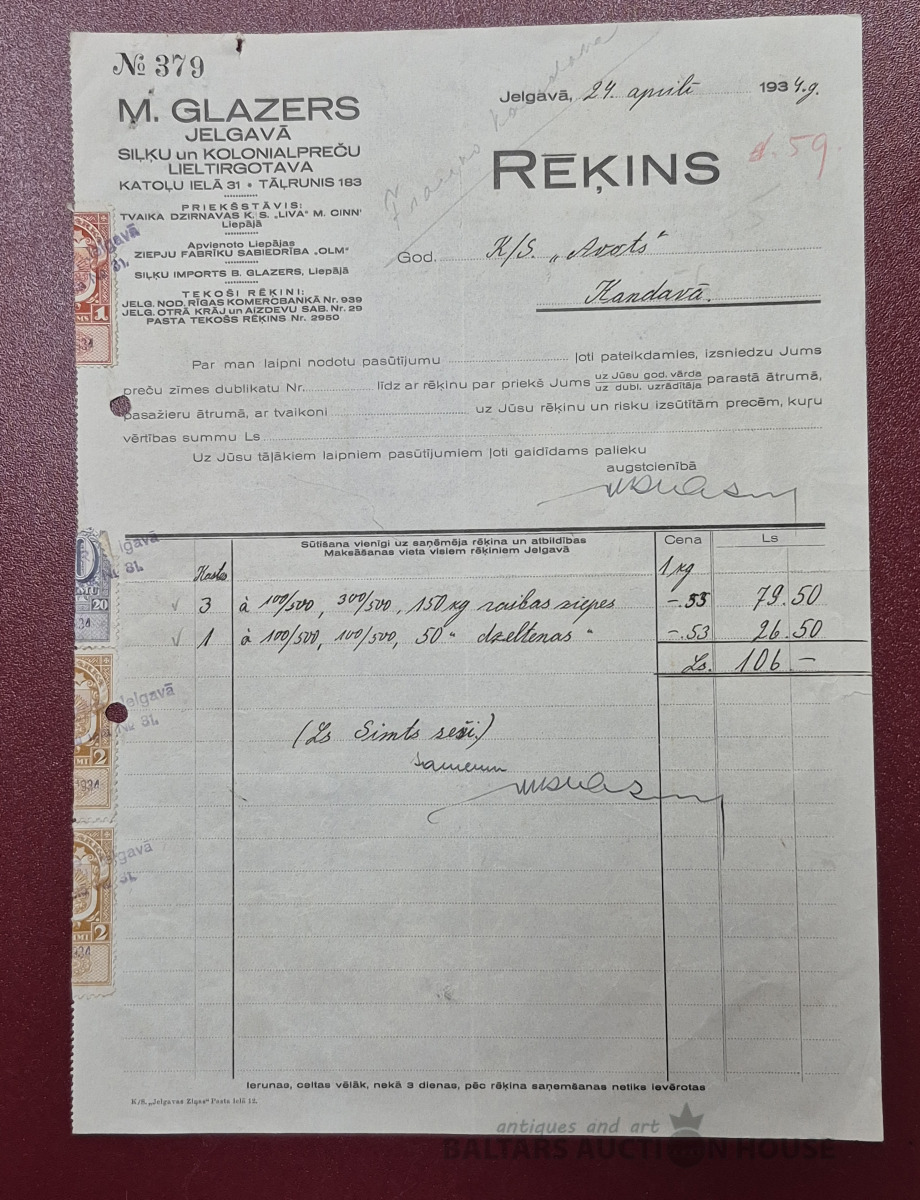 № 379
M. GLAZERS
JELGAVĀ
SIĻĶU un KOLONIALPREČU
LIELTIRGOTAVA
KATOĻU IELĀ 31 • TĀĻRUNIS 183
PRIEKŠSTĀVIS:
TVAIKA DZIRNAVAS K. S. „LIVA" M. CINN'
Liepājā
Apvienoto Liepājas
ZIEPJU FABRIKU SABIEDRĪBA „OLM"
SIĻĶU IMPORTS B. GLAZERS, Liepājā
TEKOŠI RĒĶINI:
JELG. NOD. RĪGAS KOMERCBANKĀ Nr. 939
JELG. OTRĀ KRĀJ un AIZDEVU SAB. Nr. 29
PASTA TEKOŠS RĒĶINS Nr. 2950
Jelgavā, 24. aprilī 1934.g.
RĒĶINS
59.
God. K/S. „Avots"
Kandavā.
Par man laipni nodotu pasūtījumu ļoti pateikdamies, izsniedzu Jums
preču zīmes dublikatu Nr. līdz ar rēķinu par priekš Jums uz Jūsu god. vārda uz dubl. uzrādītāja parastā ātrumā,
pasažieru ātrumā, ar tvaikoni uz Jūsu rēķinu un risku izsūtītām precēm, kuŗu
vērtības summu Ls
Uz Jūsu tāļākiem laipniem pasūtījumiem ļoti gaidīdams palieku
augstcienībā
Sūtīšana vienīgi uz saņēmēja rēķina un atbildības
Maksāšanas vieta visiem rēķiniem Jelgavā
Cena Ls
1 kg
3 à 100/500, 300/500, 150 kg raibas ziepes -.53 79.50
1 à 100/500, 100/500, 50 " dzeltenas " -.53 26.50
Ls. 106 —
(Ls Simts seši.)
Ierunas, celtas vēlāk, nekā 3 dienas, pēc rēķina saņemšanas netiks ievērotas
K/S. „Jelgavas Ziņas" Pasta ielā 12.
Jelgavā
81.
1
81.
20
Jelgavā
№ 81.
2
1934
2
antiques and art
BALTARS AUCTION HOUSE